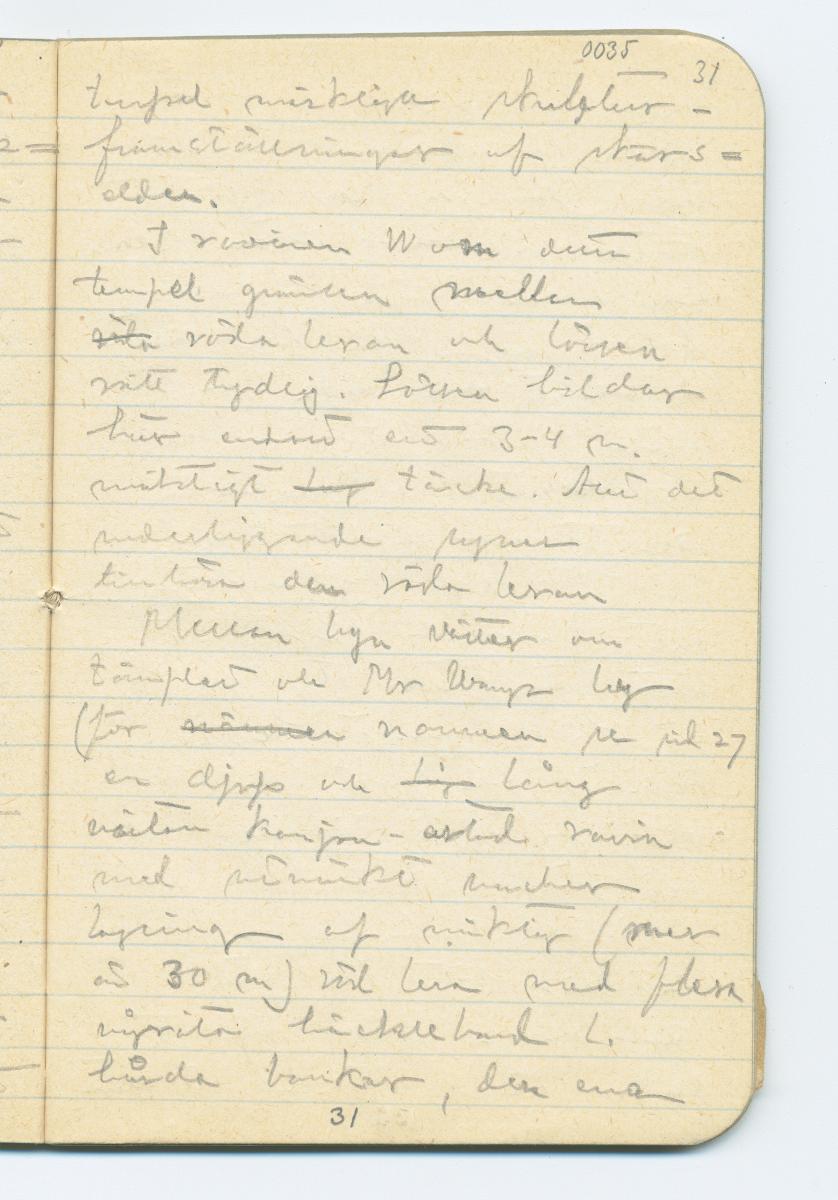 0035
31
tempel märkliga skulptur-
framställningar af skärs=
elden.
I ravinen W om detta
tempel gränsen mellan
röda leran och lössen
rätt tydlig. Lössen bildar
här endast ett 3-4 m.
mäktigt täcke. Allt det
underliggande synes
tillhöra den röda leran
Mellan byn väster om
templet och Mr Wangs by
(för namnen se sid 27
en djup och lång
nästan kanjon-artad ravin
med utmärkt
af mäktig (mer
än 30 m) röd lera med flera
bäckleband l.
hårda bankar, den ena
31